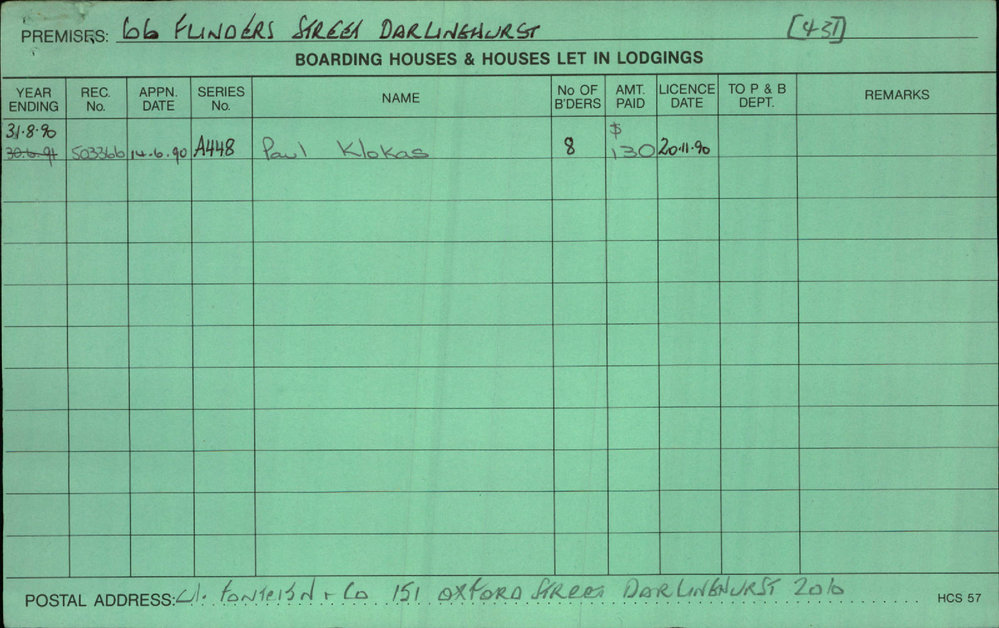 PREMISES: 66 FLINDERS STREET DARLINGHURST [431]
BOARDING HOUSES & HOUSES LET IN LODGINGS
YEAR ENDING REC. No. APPN. DATE SERIES No. NAME No OF B'DERS AMT. PAID LICENCE DATE TO P & B DEPT. REMARKS
31.8.90 $
30.6.91 503366 14.6.90 A448 Paul Klokas 8 130 20.11.90
POSTAL ADDRESS: + Co 151 OXFORD STREET DARLINGHURST 2010 HCS 57